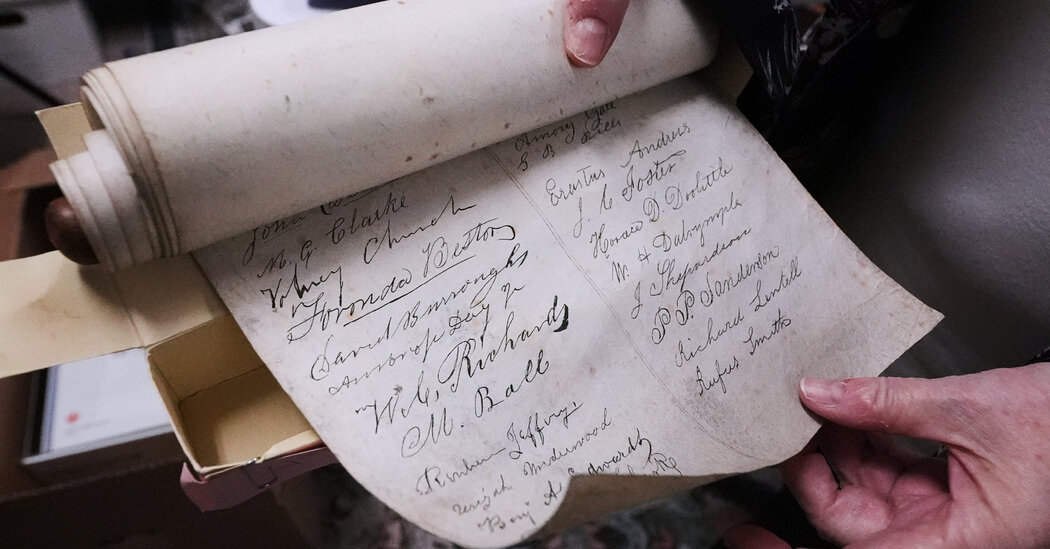 John
M. G. Clarke
Volney Church
Foronda Bestor
David Burroughs
Ambrose Day Jr
W. C. Richards
M. Ball
Reuben Jeffrys
Underwood
Benj A Edwards
Amory Gale
G B
Erastus Andrews
J. C Foster
Horace D Doolittle
W. H Dalrymple
J Shepardson
P. P. Sanderson
Richard Lentell
Rufus Smith